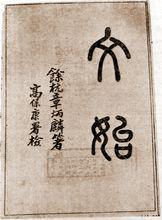 文始
餘杭章炳麟箸
高保康署檢